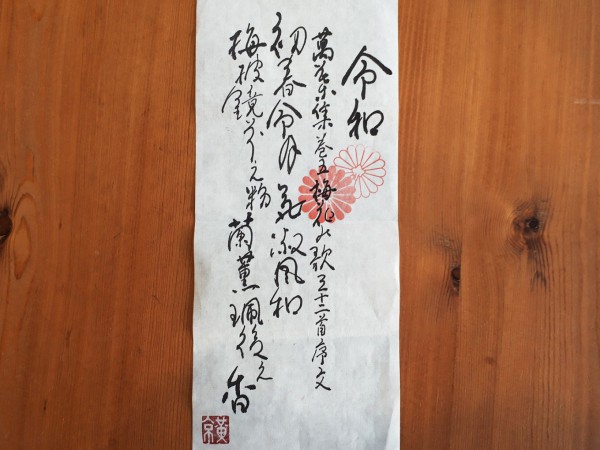 令和
萬葉集巻五梅花の歌三十二首序文
初春令月 氣淑風和
梅披鏡前之粉 蘭薫珮後之香
黄京